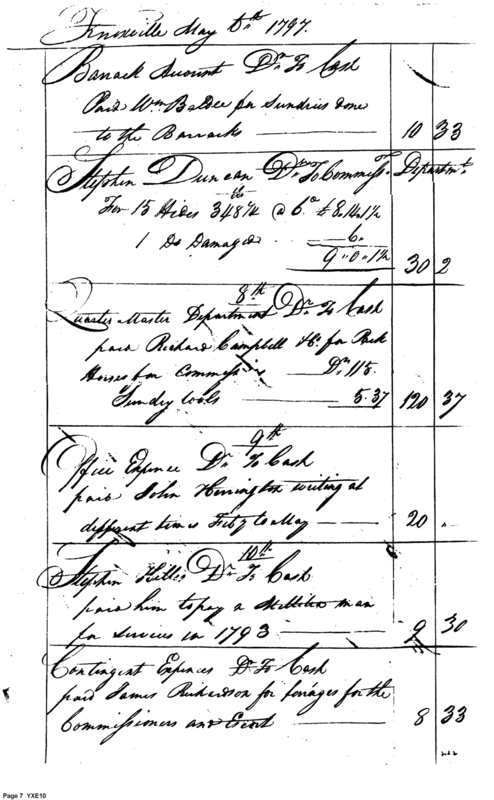 Knoxville May 6th 1797.
Barrack Account Dr. To Cash
Paid Wm Baldee for Sundries done
to the Barracks 10 33
Stephen Duncan Drs To Commissy Departmt.
For 15 Hides 348 1/2 lb @ 6d £8.14.1 1/2
1 Do Damaged 6.
9"0"1 1/2 30 2
8th
Quarter Master Department Dr. To Cash
paid Richard Campbell &c. for Pack
Horses for Commissrs Drs. 115.
Sundry tools 5.37 120 37
9th
Office Expence Dr. To Cash
paid John Herrington writing at
different times Feby to May 20 "
10th
Stephen Hillis Dr. To Cash
paid him to pay a Militia man
for services in 1793 9 30
Contingent Expences Dr. To Cash
paid James Richardson for feriages for the
Commissioners and Escort 8 33
Page 7 YXE10